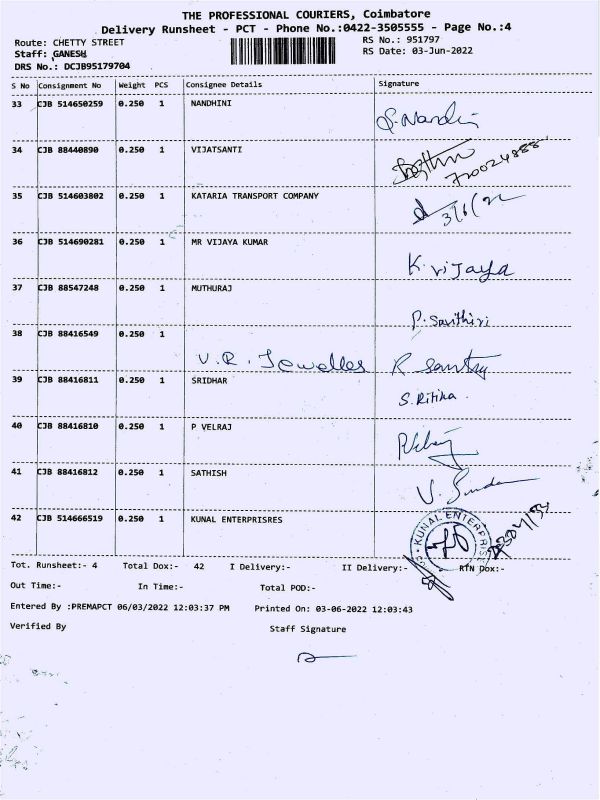 THE PROFESSIONAL COURIERS, Coimbatore
Delivery Runsheet - PCT - Phone No.:0422-3505555 - Page No.:4
Route: CHETTY STREET RS No.: 951797
Staff: GANESH RS Date: 03-Jun-2022
DRS No.: DCJB95179704
S No Consignment No Weight PCS Consignee Details Signature
33 CJB 514650259 0.250 1 NANDHINI
34 CJB 88440890 0.250 1 VIJATSANTI
35 CJB 514603802 0.250 1 KATARIA TRANSPORT COMPANY
3/6/22
36 CJB 514690281 0.250 1 MR VIJAYA KUMAR
K. vijaya
37 CJB 88547248 0.250 1 MUTHURAJ
P. Savithiri
38 CJB 88416549 0.250 1
V. R. Jewelles
39 CJB 88416811 0.250 1 SRIDHAR
S. Ritika.
40 CJB 88416810 0.250 1 P VELRAJ
41 CJB 88416812 0.250 1 SATHISH
42 CJB 514666519 0.250 1 KUNAL ENTERPRISRES
KUNAL ENTERPRISE
Tot. Runsheet:- 4 Total Dox:- 42 I Delivery:- II Delivery:- RTN Dox:-
Out Time:- In Time:- Total POD:-
Entered By :PREMAPCT 06/03/2022 12:03:37 PM Printed On: 03-06-2022 12:03:43
Verified By Staff Signature